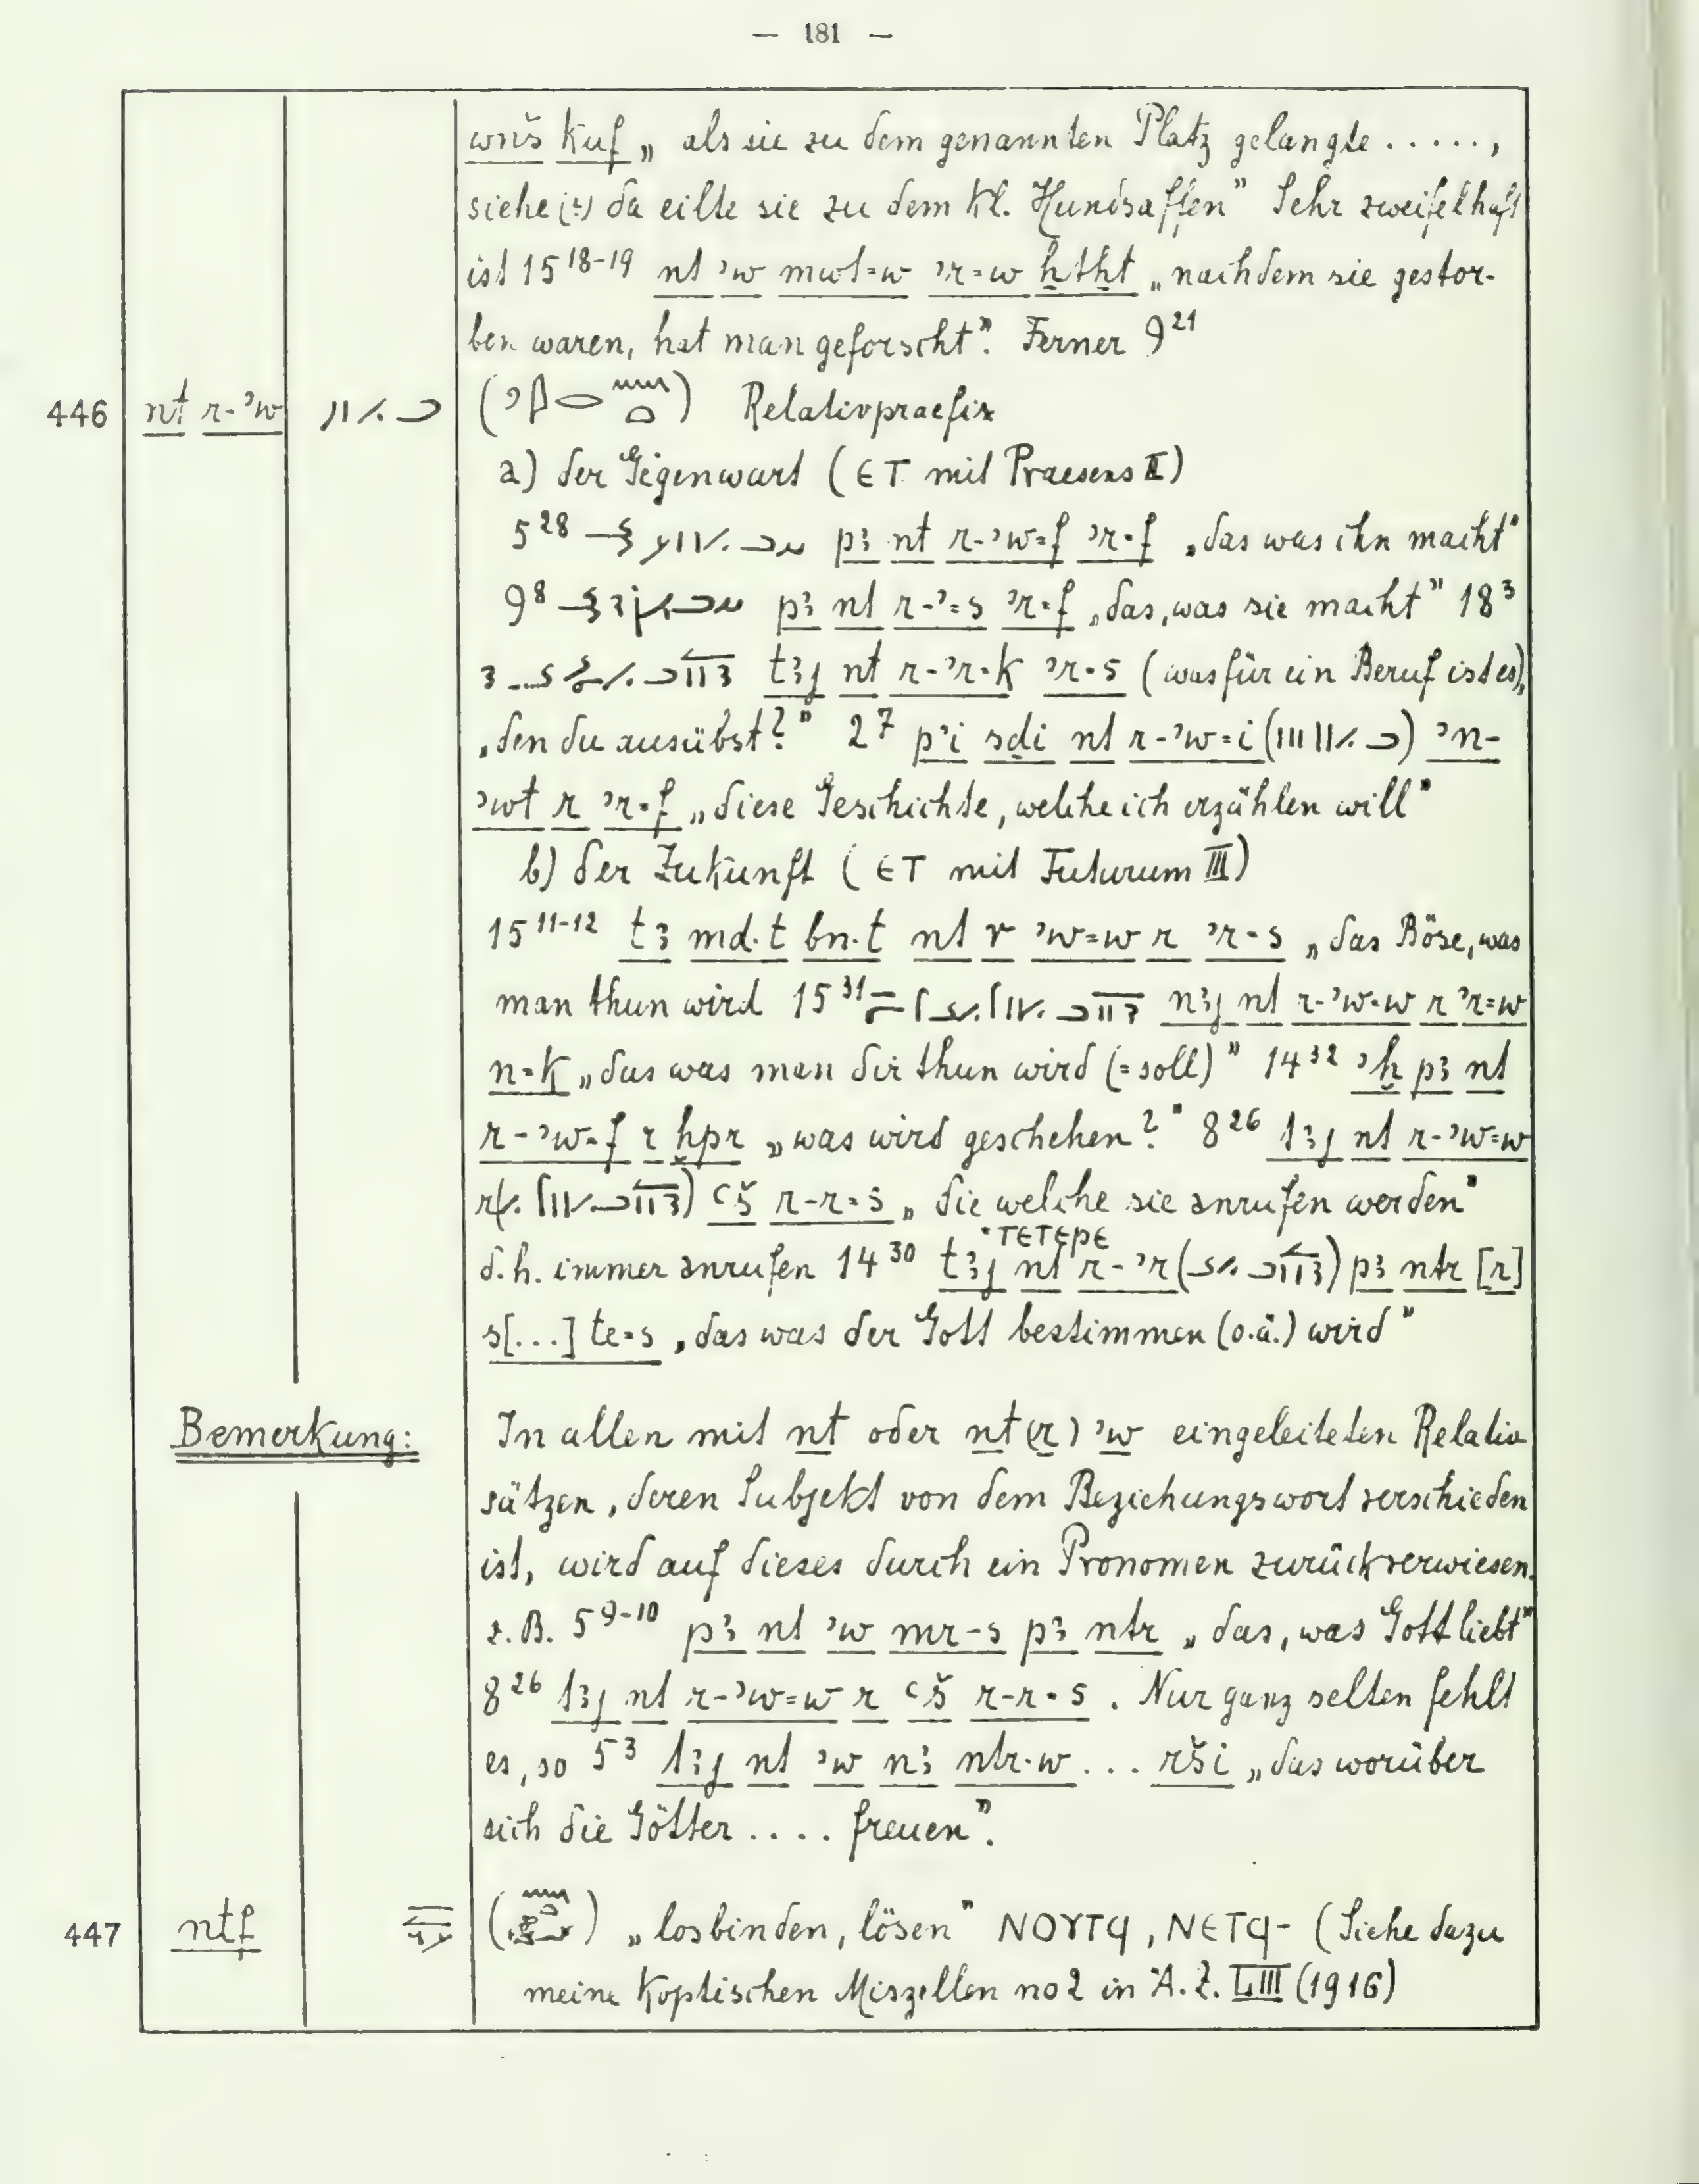 — 181 —
wnš kuf „ als sie zu dem genannten Platz gelangte .....,
siehe (?) da eilte sie zu dem kl. Hundsaffen” Sehr zweifelhaft
ist 15¹⁸⁻¹⁹ nt ꜣw mwt=w ꜣr=w ẖtẖt „nachdem sie gestor-
ben waren, hat man geforscht”. Ferner 9²¹
446 nt r-ꜣw ( ) Relativpraefix
a) der Gegenwart (ⲉⲧ mit Praesens II)
5²⁸ pꜣ nt r-ꜣw=f ꜣr=f „das was ihn macht”
9⁸ pꜣ nt r-ꜣ=s ꜣr=f „das, was sie macht” 18³
tꜣj nt r-ꜣr=k ꜣr=s (was für ein Beruf ist es),
„den du ausübst?” 2⁷ pꜣi sdi nt r-ꜣw=i ( ) ꜣn-
ꜣwt r ꜣr=f „diese Geschichte, welche ich erzählen will”
b) der Zukunft (ⲉⲧ mit Futurum III)
15¹¹⁻¹² tꜣ md.t bn.t nt r ꜣw=w r ꜣr=s „das Böse, was
man thun wird 15³¹ nꜣj nt r-ꜣw=w r ꜣr=w
n=k „das was man dir thun wird (=soll)” 14³² ꜣḫ pꜣ nt
r-ꜣw=f r ḫpr „was wird geschehen?” 8²⁶ tꜣj nt r-ꜣw=w
r ( ) ꜥš r-r=s „die welche sie anrufen werden”
ⲧⲉⲧⲉⲣⲉ
d.h. immer anrufen 14³⁰ tꜣj nt r-ꜣr ( ) pꜣ ntr [r]
s[...] te=s „das was der Gott bestimmen (o.ä.) wird”
Bemerkung: In allen mit nt oder nt (r) ꜣw eingeleiteten Relativ
sätzen, deren Subjekt von dem Beziehungswort verschieden
ist, wird auf dieses durch ein Pronomen zurückverwiesen.
z.B. 5⁹⁻¹⁰ pꜣ nt ꜣw mr-s pꜣ ntr „das, was Gott liebt”
8²⁶ tꜣj nt r-ꜣw=w r ꜥš r-r=s. Nur ganz selten fehlt
es, so 5³ tꜣj nt ꜣw nꜣ ntr.w ... rši „das worüber
sich die Götter .... freuen”.
447 ntf ( ) „losbinden, lösen” ⲛⲟⲩⲧϥ, ⲛⲉⲧϥ- (Siehe dazu
meine Koptischen Miszellen no 2 in Ä.Z. LIII (1916)